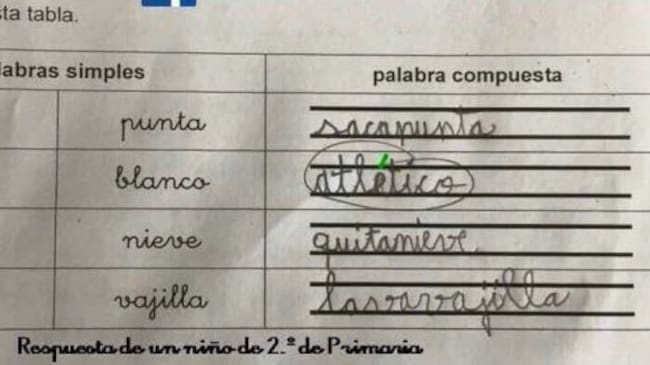 sta tabla.
labras simples palabra compuesta
punta sacapunta
blanco atlético
nieve quitanieve
vajilla lavavajilla
Respuesta de un niño de 2.º de Primaria